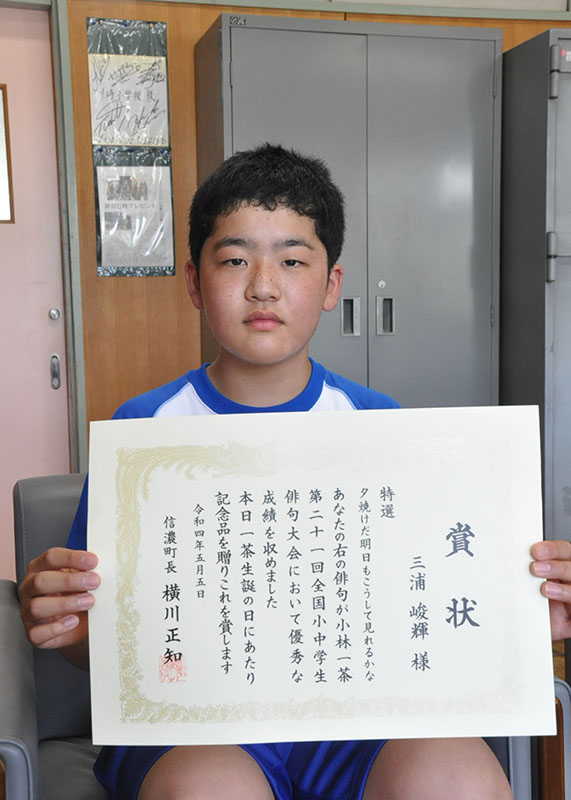 賞状
三浦 峻輝 様
特選
夕焼けだ明日もこうして見れるかな
あなたの右の俳句が小林一茶
第二十一回全国小中学生
俳句大会において優秀な
成績を収めました
本日一茶生誕の日にあたり
記念品を贈りこれを賞します
令和四年五月五日
信濃町長 横川正知